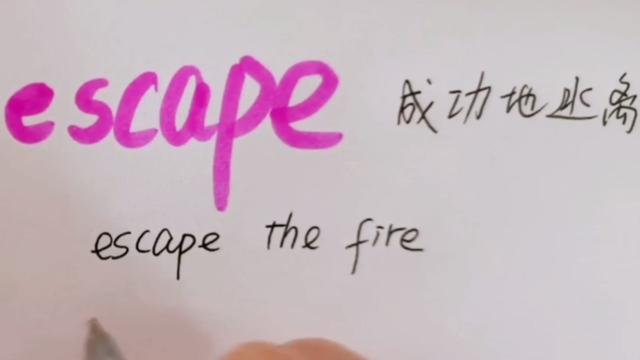 escape 成功地逃离
escape the fire